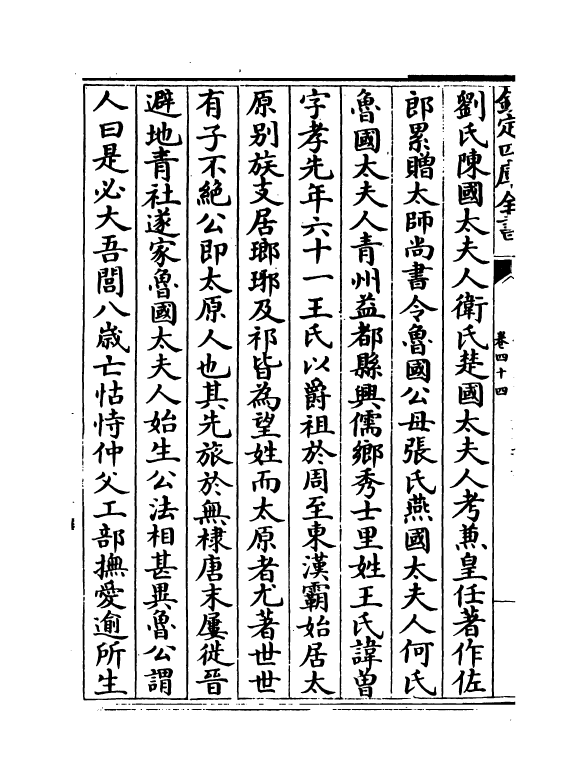 欽定四庫全書
卷四十四
劉氏陳國太夫人衛氏楚國太夫人考兼皇任著作佐
郎累贈太師尚書令魯國公母張氏燕國太夫人何氏
魯國太夫人青州益都縣興儒鄉秀士里姓王氏諱曾
字孝先年六十一王氏以爵祖於周至東漢霸始居太
原别族支居瑯琊及祁皆為望姓而太原者尤著世世
有子不絶公即太原人也其先旅於無棣唐末屢徙晉
避地青社遂家魯國太夫人始生公法相甚異魯公謂
人曰是必大吾閭八歲亡怙恃仲父工部撫愛逾所生